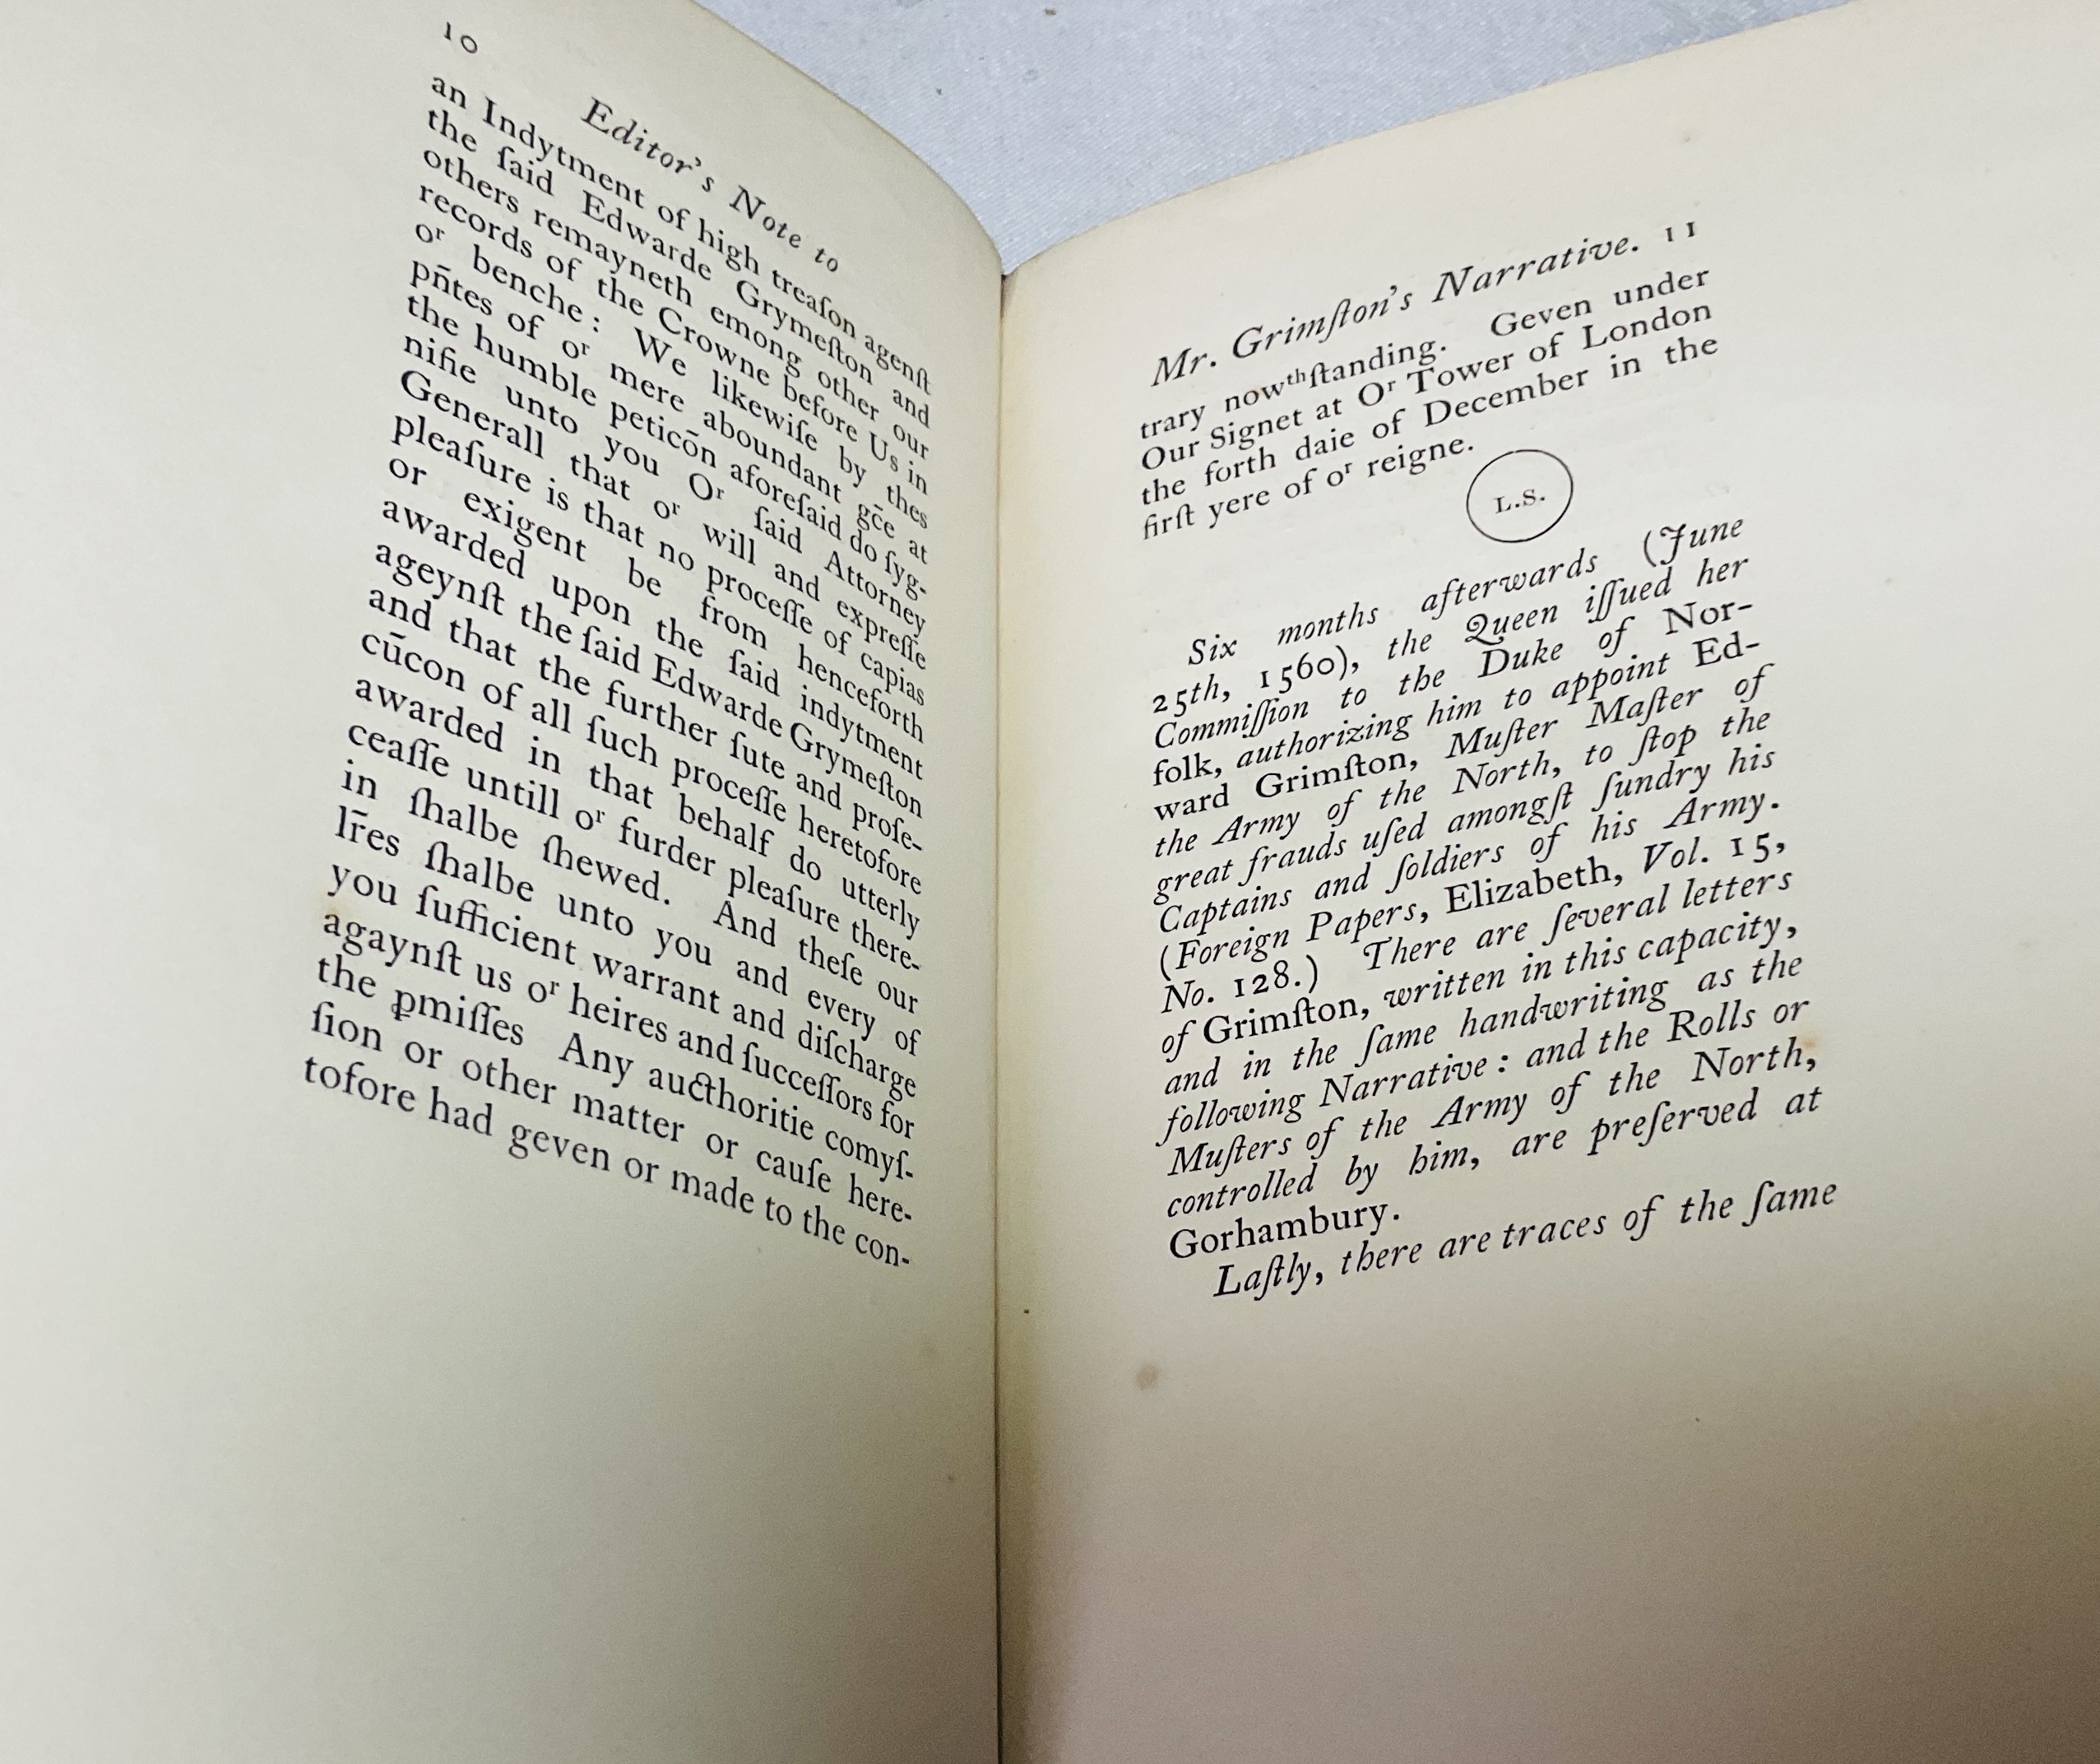 10
Editor's Note to
an Indytment of high treaſon agenſt
the ſaid Edwarde Grymeſton and
others remayneth emong other our
records of the Crowne before Us in
oʳ benche : We likewiſe by thes
pn̄tes of oʳ mere aboundant gc̄e at
the humble peticōn aforeſaid do ſyg-
nifie unto you Oʳ ſaid Attorney
Generall that oʳ will and expreſſe
pleaſure is that no proceſſe of capias
or exigent be from henceforth
awarded upon the ſaid indytment
ageynſt the ſaid Edwarde Grymeſton
and that the further ſute and proſe-
cūcon of all ſuch proceſſe heretofore
awarded in that behalf do utterly
ceaſſe untill oʳ furder pleaſure there-
in ſhalbe ſhewed. And theſe our
lr̄es ſhalbe unto you and every of
you ſufficient warrant and diſcharge
agaynſt us oʳ heires and ſucceſſors for
the ꝑmiſſes Any aucthoritie comyſ-
ſion or other matter or cauſe here-
tofore had geven or made to the con-
Mr. Grimſton's Narrative. 11
trary nowᵗʰſtanding. Geven under
Our Signet at Oʳ Tower of London
the forth daie of December in the
firſt yere of oʳ reigne.
L.S.
Six months afterwards (June
25th, 1560), the Queen iſſued her
Commiſſion to the Duke of Nor-
folk, authorizing him to appoint Ed-
ward Grimſton, Muſter Maſter of
the Army of the North, to ſtop the
great frauds uſed amongſt ſundry his
Captains and ſoldiers of his Army.
(Foreign Papers, Elizabeth, Vol. 15,
No. 128.) There are ſeveral letters
of Grimſton, written in this capacity,
and in the ſame handwriting as the
following Narrative : and the Rolls or
Muſters of the Army of the North,
controlled by him, are preſerved at
Gorhambury.
Laſtly, there are traces of the ſame